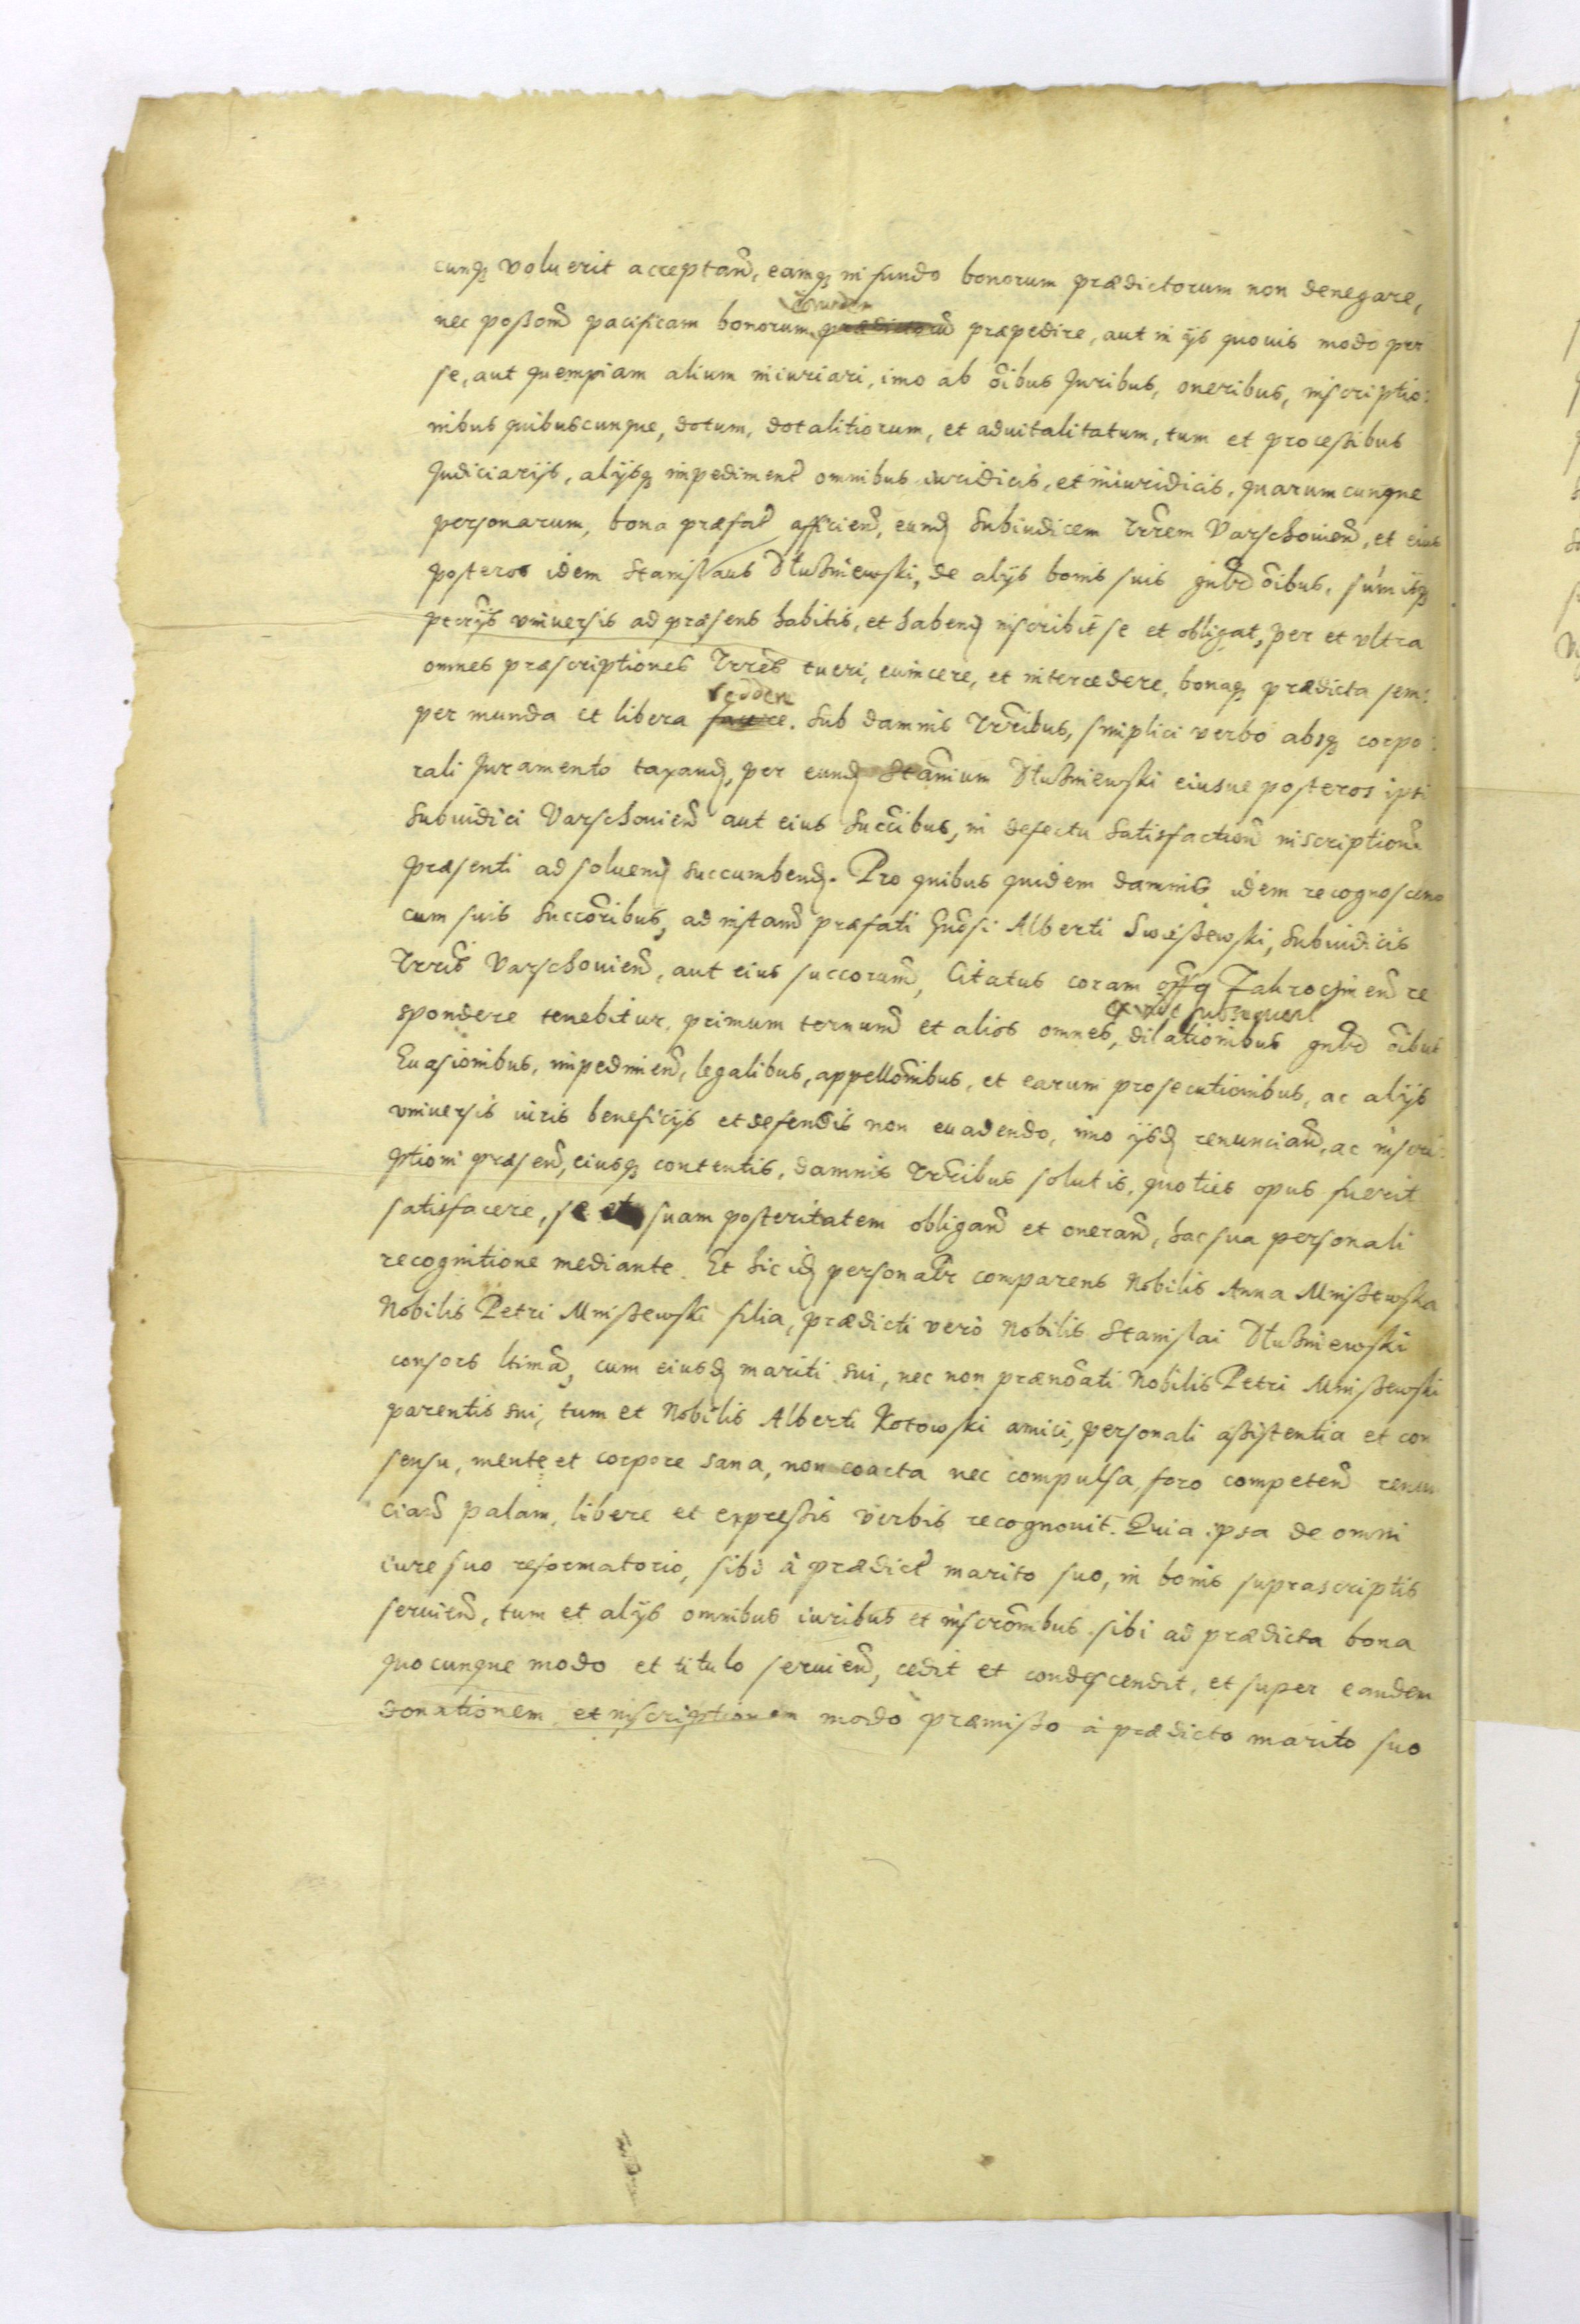 cunq voluerit acceptand, eamq in fundo bonorum prædictorum non denegare,
nec possom̃ pacificam bonorum eorundem præpedire, aut in ijs quovis modo per
se, aut quempiam alium iniuriari, imo ab oibus Juribus, oneribus, inscriptio:
nibus quibuscunque, dotum, dotalitiorum, et advitalitatum, tum et processibus
Judiciarijs, alijsq impediment omnibus iuridicis, et iniuridicis, quarumcunque
personarum, bona præfat afficien, eund Subiudicem Trrem Varschovien, et eius
posteros idem Stanislaus Dłużniewski, de alijs bonis suis gnbr oibus, sumisq
pecrijs universis ad præsens habitis, et habend inscribit se et obligat, per et ultra
omnes præscriptiones Trres tueri, evincere, et intercedere, bonaq prædicta sem:
per munda et libera redden. Sub damnis Trribus, simplici verbo absq corpo:
rali Juramento taxand, per eund Stanium Dłużniewski eiusve posteros ipsi
Subiudici Varschovien aut eius Succibus, in defectu Satisfaction inscription
præsenti ad solvend succumbend. Pro quibus quidem damnis idem recognoscens
cum suis Succoribus, ad instan præfati Gnosi Alberti Swieszewski, Subiudicis
Trris Varschovien, aut eius succorum, Citatus coram offo Zakrocimen re
spondere tenebitur, primum ternum et alios omnes, ex nõc subsequent dilationibus gnbr oibus
Evasionibus, impedimen, legalibus, appellonibus, et earum prosecutionibus, ac alijs
universis iuris beneficijs et defensis non evadendo, imo ijsd renuncian, ac inscri:
ptioni præsen, eiusq contentis, damnis Trribus solutis, quoties opus fuerit
satisfacere, se et suam posteritatem obligan et oneran, hac sua personali
recognitione mediante. Et hic id personalr comparens Nobilis Anna Mniszewska
Nobilis Petri Mniszewski filia, prædicti verò Nobilis Stanislai Dłużniewski
consors ltima, cum eiusd mariti sui, nec non prænoati Nobilis Petri Mniszewski
parentis sui, tum et Nobilis Alberti Kotowski amici, personali assistentia et con
sensu, mente et corpore sana, non coacta nec compulsa, foro competen renun
cian palam, libere et expressis verbis recognovit. Quia ipsa de omni
iure suo reformatorio, sibi à prædict marito suo, in bonis suprascriptis
servien, tum et alijs omnibus iuribus et inscronibus sibi ad prædicta bona
quocunque modo et titulo servien, cedit et condescendit, et super eandem
donationem et inscriptionem modo præmisso à prædicto marito suo